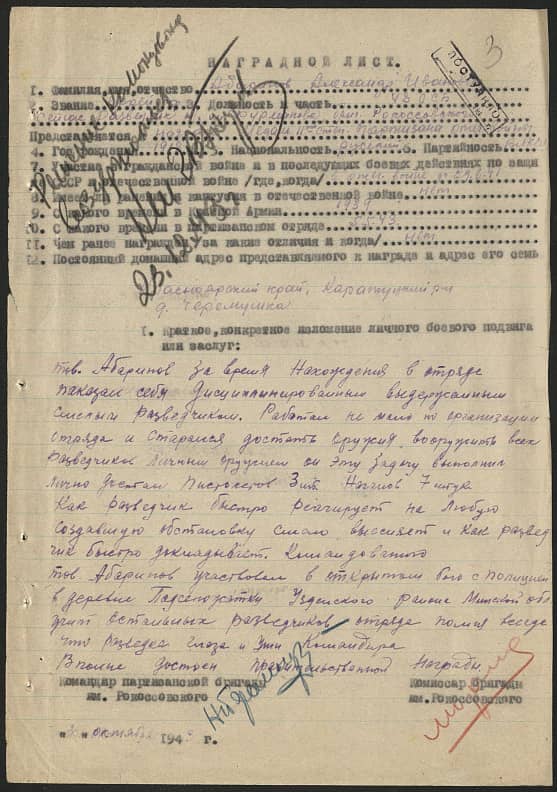 3
НАГРАДНОЙ ЛИСТ.
1. Фамилия имя, отчество Абаринов Александр Иванович
2. Звание Должность, часть
Рокоссовского
Представляется партизана
4. Год рождения Национальность русский 6. Партийность
7. Участие в гражданской войне и в последующих боевых действиях по защи
СССР в отечественной войне /где, когда/
8. Имеет ли ранения и контузии в отечественной войне нет
9. С какого времени в Красной Армии 1939
10. С какого времени в партизанском отряде
11. Чем ранее награжден /за какие отличия и когда/ нет
12. Постоянный домашний адрес представляемого к награде и адрес его семь
Красноярский край, Каратузский р-н
д. Черемушка
23.12.43г
1. Краткое, конкретное изложение личного боевого подвига
или заслуг:
тов. Абаринов за время нахождения в отряде
показал себя дисциплинированным выдержанным
смелым разведчиком. Работал не мало по организации
отряда и старался достать оружия, вооружить всех
разведчиков личным оружием он эту задачу выполнил
лично достал пистолетов 3 шт. Наганов 7 штук
Как разведчик быстро реагирует на любую
создавшую обстановку смело выесняет и как развед
чик быстро докладывает. Командованию
тов. Абаринов участвовал в открытом бою с полицией
в деревне Узденского района Минской обл
учит остальных разведчиков отряда помня всегда
что разведка глаза и уши Командира
Вполне достоин правительственной Награды.
Командир партизанской бригады Комиссар бригады
им. Рокоссовского им. Рокоссовского
октября 194 г.